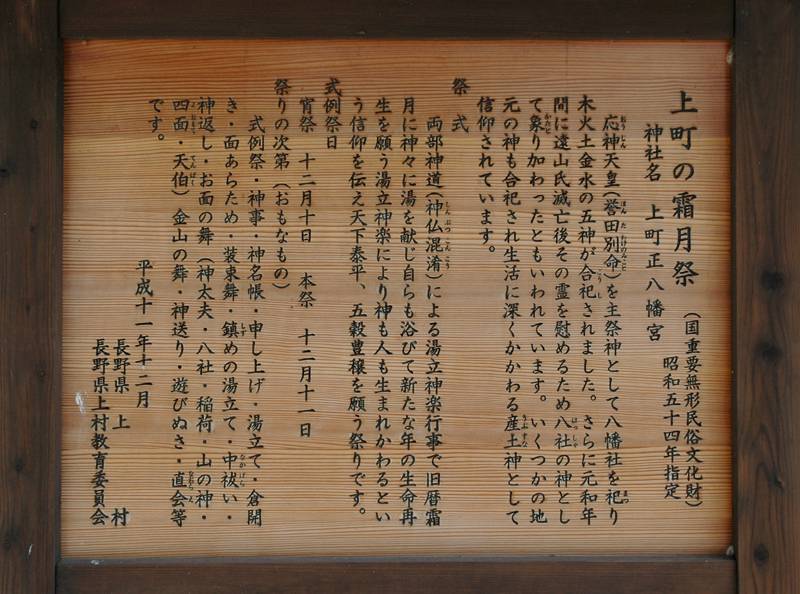 上町の霜月祭
（国重要無形民俗文化財）
昭和五十四年指定
神社名　上町正八幡宮
応神天皇（誉田別命）を主祭神として八幡社を祀り
木火土金水の五神が合祀されました。さらに元和年
間に遠山氏滅亡後その霊を慰めるため八社の神とし
て象り加わったともいわれています。いくつかの地
元の神も合祀され生活に深くかかわる産土神として
信仰されています。
祭　式
両部神道（神仏混淆）による湯立神楽行事で旧暦霜
月に神々に湯を献じ自らも浴びて新たな年の生命再
生を願う湯立神楽により神も人も生まれかわるとい
う信仰を伝え天下泰平、五穀豊穣を願う祭りです。
式例祭日
宵祭　十二月十日　本祭　十二月十一日
祭りの次第（おもなもの）
式例祭・神事・神名帳・申し上げ・湯立て・倉開
き・面あらため・装束舞・鎮めの湯立て・中祓い・
神返し・お面の舞（神太夫・八社・稲荷・山の神・
四面・天伯）金山の舞・神送り・遊びぬさ・直会等
です。
平成十一年十二月
長野県　上　　村
長野県上村教育委員会